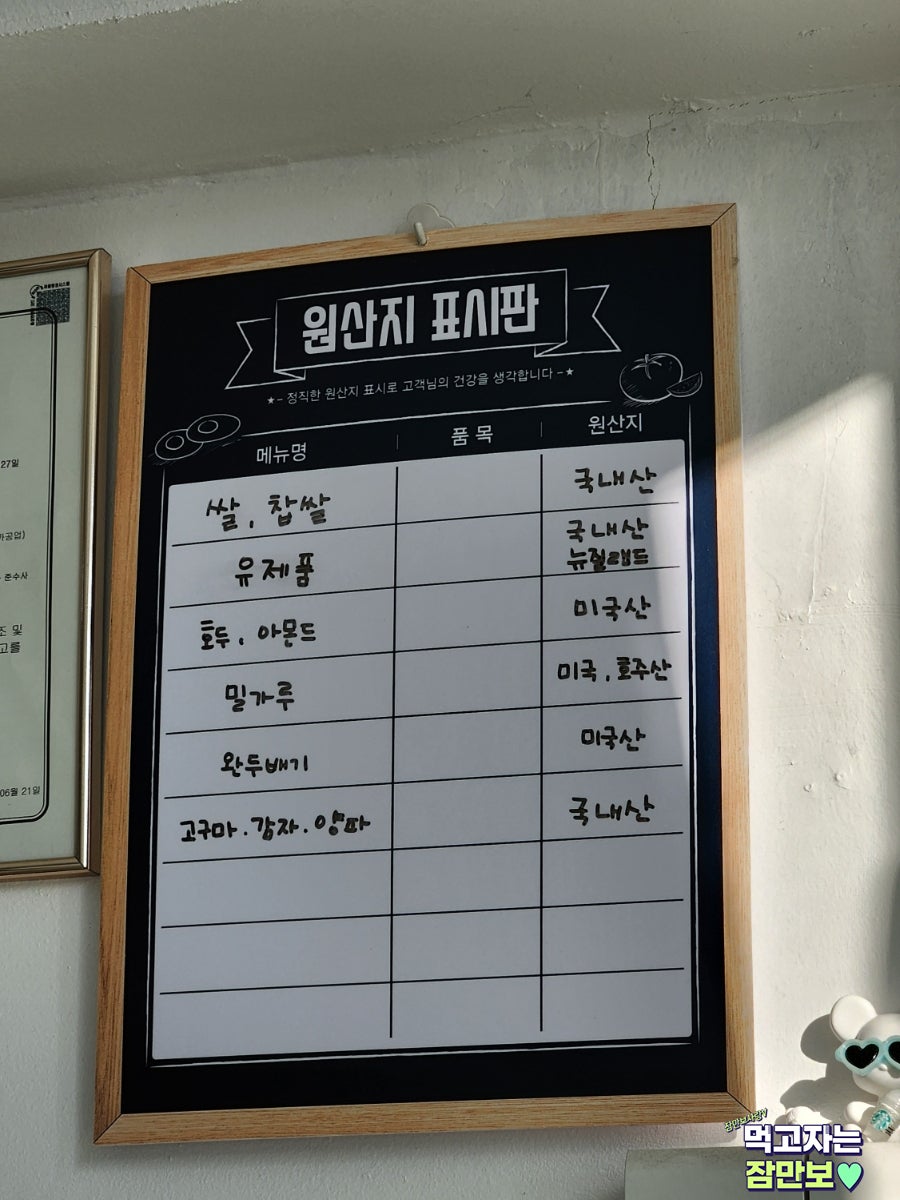 원산지 표시판
★- 정직한 원산지 표시로 고객님의 건강을 생각합니다 -★
메뉴명 품목 원산지
쌀, 찹쌀 국내산
유제품 국내산
뉴질랜드
호두, 아몬드 미국산
밀가루 미국, 호주산
완두배기 미국산
고구마.감자.양파 국내산
27일
가공업)
준수사
조 및
고를
06월 21일
잠만보사랑?
먹고자는
잠만보